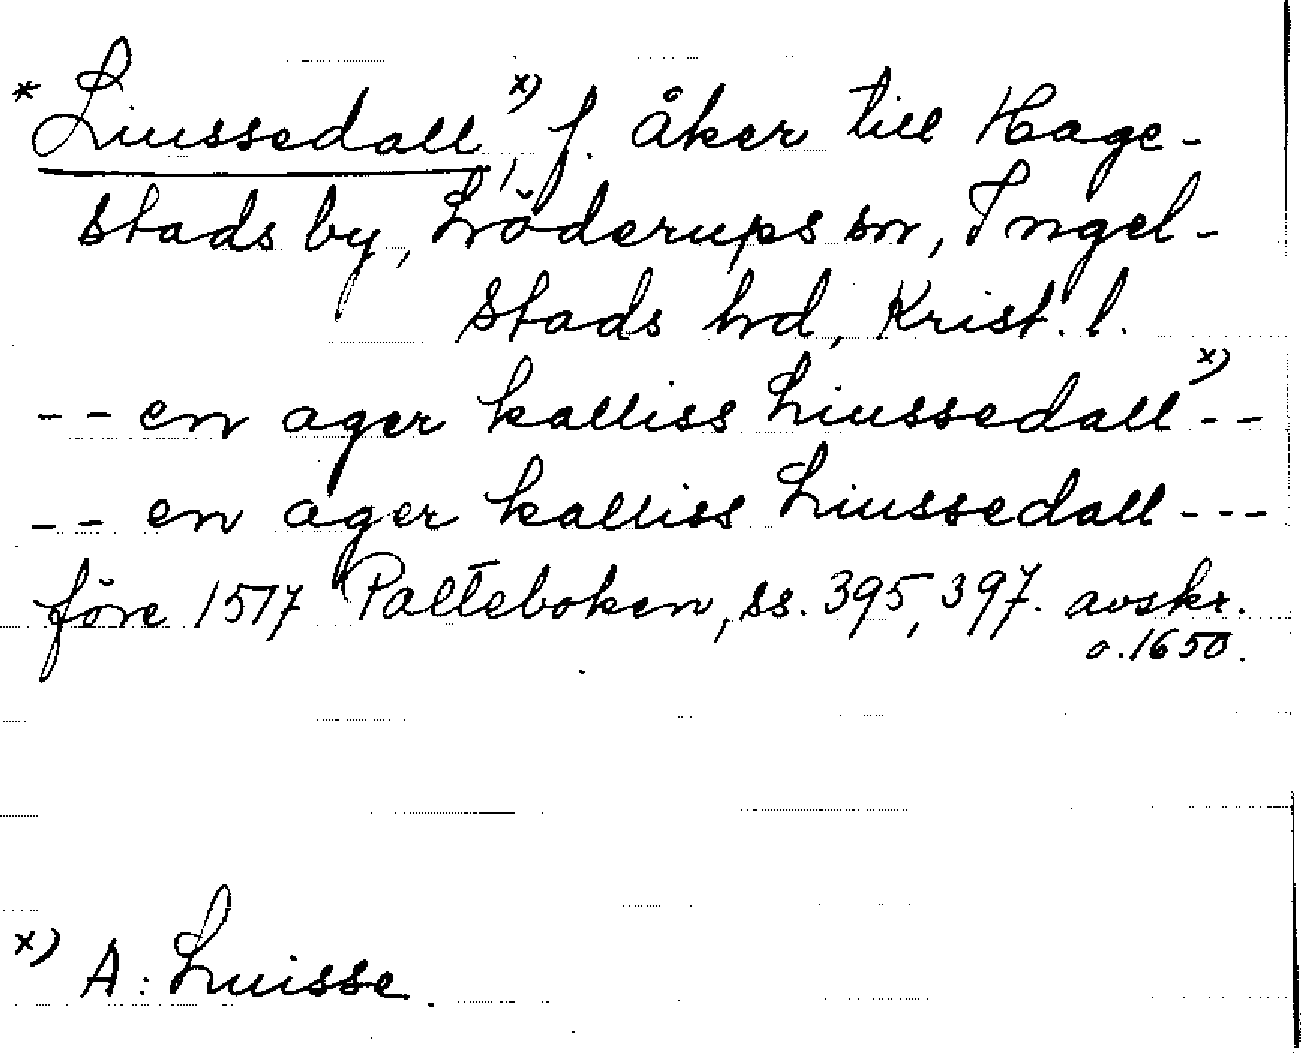 * Liussedall, x) f. åker till Hage-
stads by, Löderups sn, Ingel-
stads hd, Krist. l.
-- en ager kalliss Liussedall x) --
-- en ager kalliss Liussedall ---
före 1517 Palteboken, ss. 395, 397. avskr.
o. 1650.
x) A: Luisse.